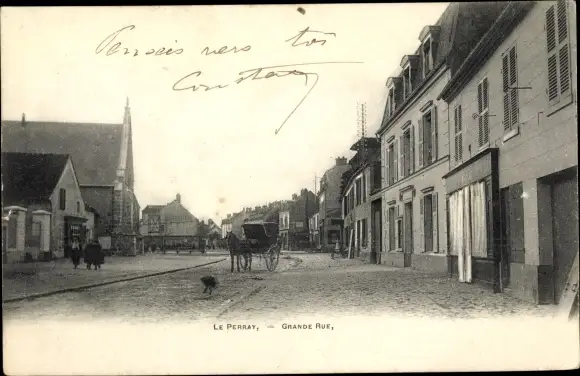 Pensées vers toi
LE PERRAY, — GRANDE RUE,